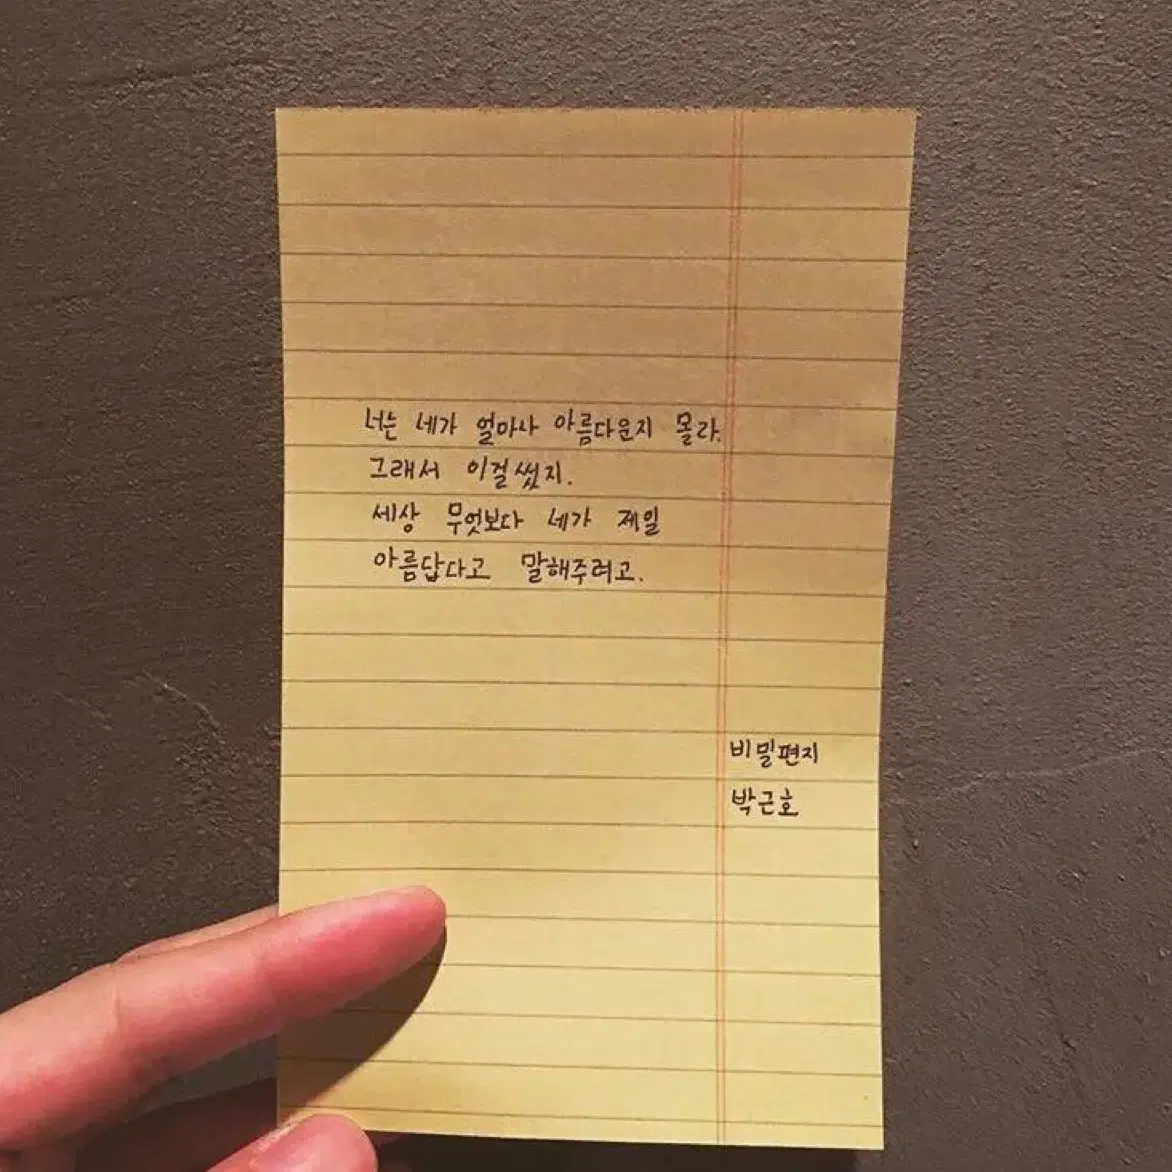 너는 네가 얼마나 아름다운지 몰라.
그래서 이걸 썼지.
세상 무엇보다 네가 제일
아름답다고 말해주려고.
비밀편지
박근호